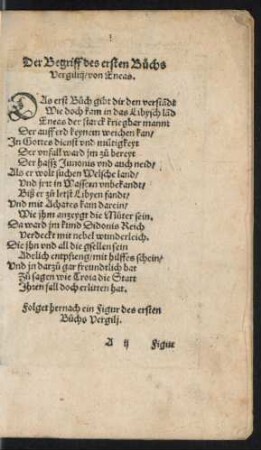 Der Begriff des ersten Buͤchs
Vergilij/von Eneas.
DAs erst Buͤch gibt dir den verstãdt
Wie doch kam in das Libysch lãd
Eneas der starck kriegbar mann
Der auff erd keynem weichen kan/
In Gottes dienst vnd muͤtigkeyt
Der vnfall ward jm zuͤ bereyt
Der hassz Junonis vnd auch neid/
Als er wolt suͦchen Welsche land/
Vnd jrtt in Wassern vnbekandt/
Biß er zuͤ letst Libyen fandt/
Vnd mit Achates kam darein/
Wie jhm anzeygt die Muͤter sein.
Da ward jm kund Didonis Reich
Verdeckt mit nebel wunderleich.
Die jhn vnd all die gsellen sein
Adelich entpfieng/mit hülffes schein/
Vnd jn darzuͤ gar freundtlich bat
Zuͤ sagen wie Troia die Statt
Ihren fall doch erlitten hat.
Folget hernach ein Figur des ersten
Buͤchs Vergilij.
A ij Figur